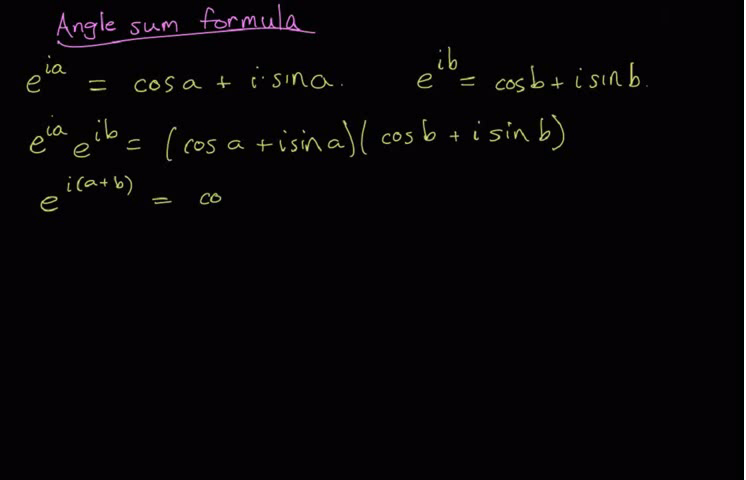 Angle sum formula
e^{ia} = cos a + i·sin a. e^{ib} = cos b + i sin b.
e^{ia} e^{ib} = (cos a + i sin a)(cos b + i sin b)
e^{i(a+b)} = co